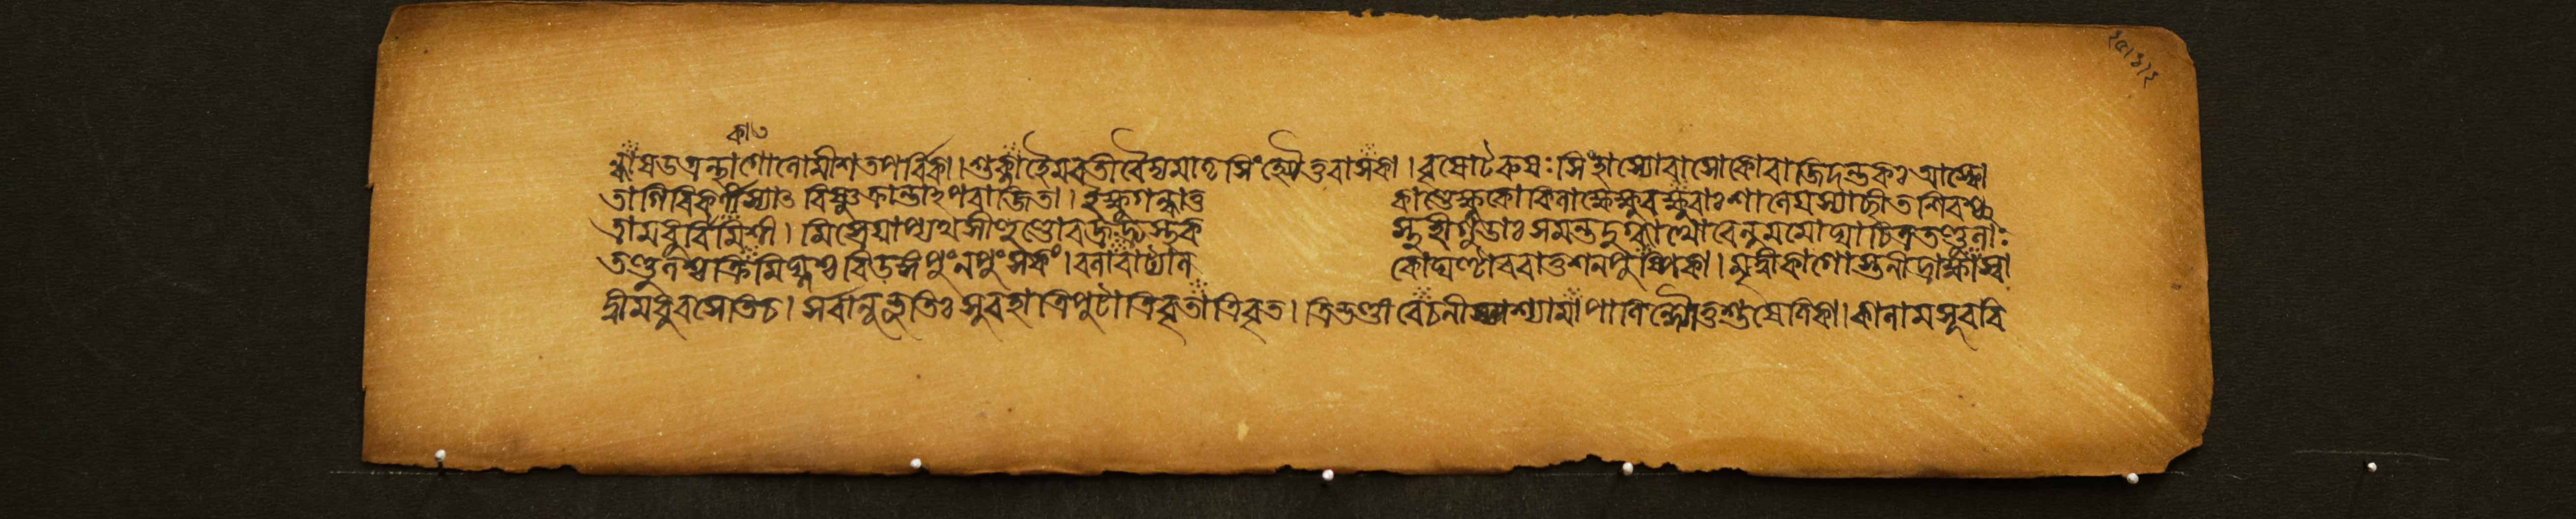 কা ৩
ন্ধাষড্গ্রন্থাগোলোমীশতপর্বিকা। শুক্লাহৈমবতীবৈদ্যমাতৃসিংহ্যৌতুবাসকা। বৃষোটরুষঃ সিংহাস্যোবাসকোবাজিদন্তকঃ আস্ফো
তাগিরিকর্ণীস্যাৎ বিষ্ণুক্রান্তাঽপরাজিতা। ইক্ষুগন্ধাতু কাণ্ডেক্ষুকোকিলাক্ষেক্ষুরক্ষুরাঃ শালেয়স্যাচ্ছীতশিবশ্ছ
ত্রামধুরিমিশী। মিশ্রেয়াপ্যথসীহুণ্ডোবজ্রদ্রুস্নুক স্নুহীগুডাঃ সমন্তদুগ্ধাথোবেল্লমমোঘাচিত্রতণ্ডুলাঃ
তণ্ডুলশ্চক্রিমিঘ্নশ্চবিডঙ্গপুংনপুংসকং। বলাবাট্যাল কোঘণ্টারবাতুশনপুষ্পিকা। মৃদ্বীকাগোস্তনীদ্রাক্ষাস্বা
দ্বীমধুরসেতিচ। সর্বানুভূতিঃ সুবহাত্রিপুটাত্রিবৃতাত্রিবৃত। ত্রিভণ্ডীরেচনীশ্যামাপালিন্ধ্যৌতুশুষেণিকা। কালামসূরবি